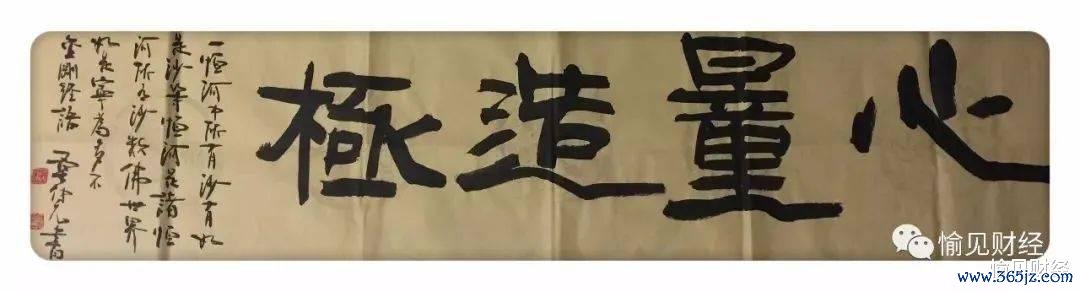 心量造極
一恒河中所有沙有如
是沙等恒河是諸恒
河所有沙數佛世界
如是寧為多不
金剛經語
書
愉见财经
愉见财经
www.365jz.com